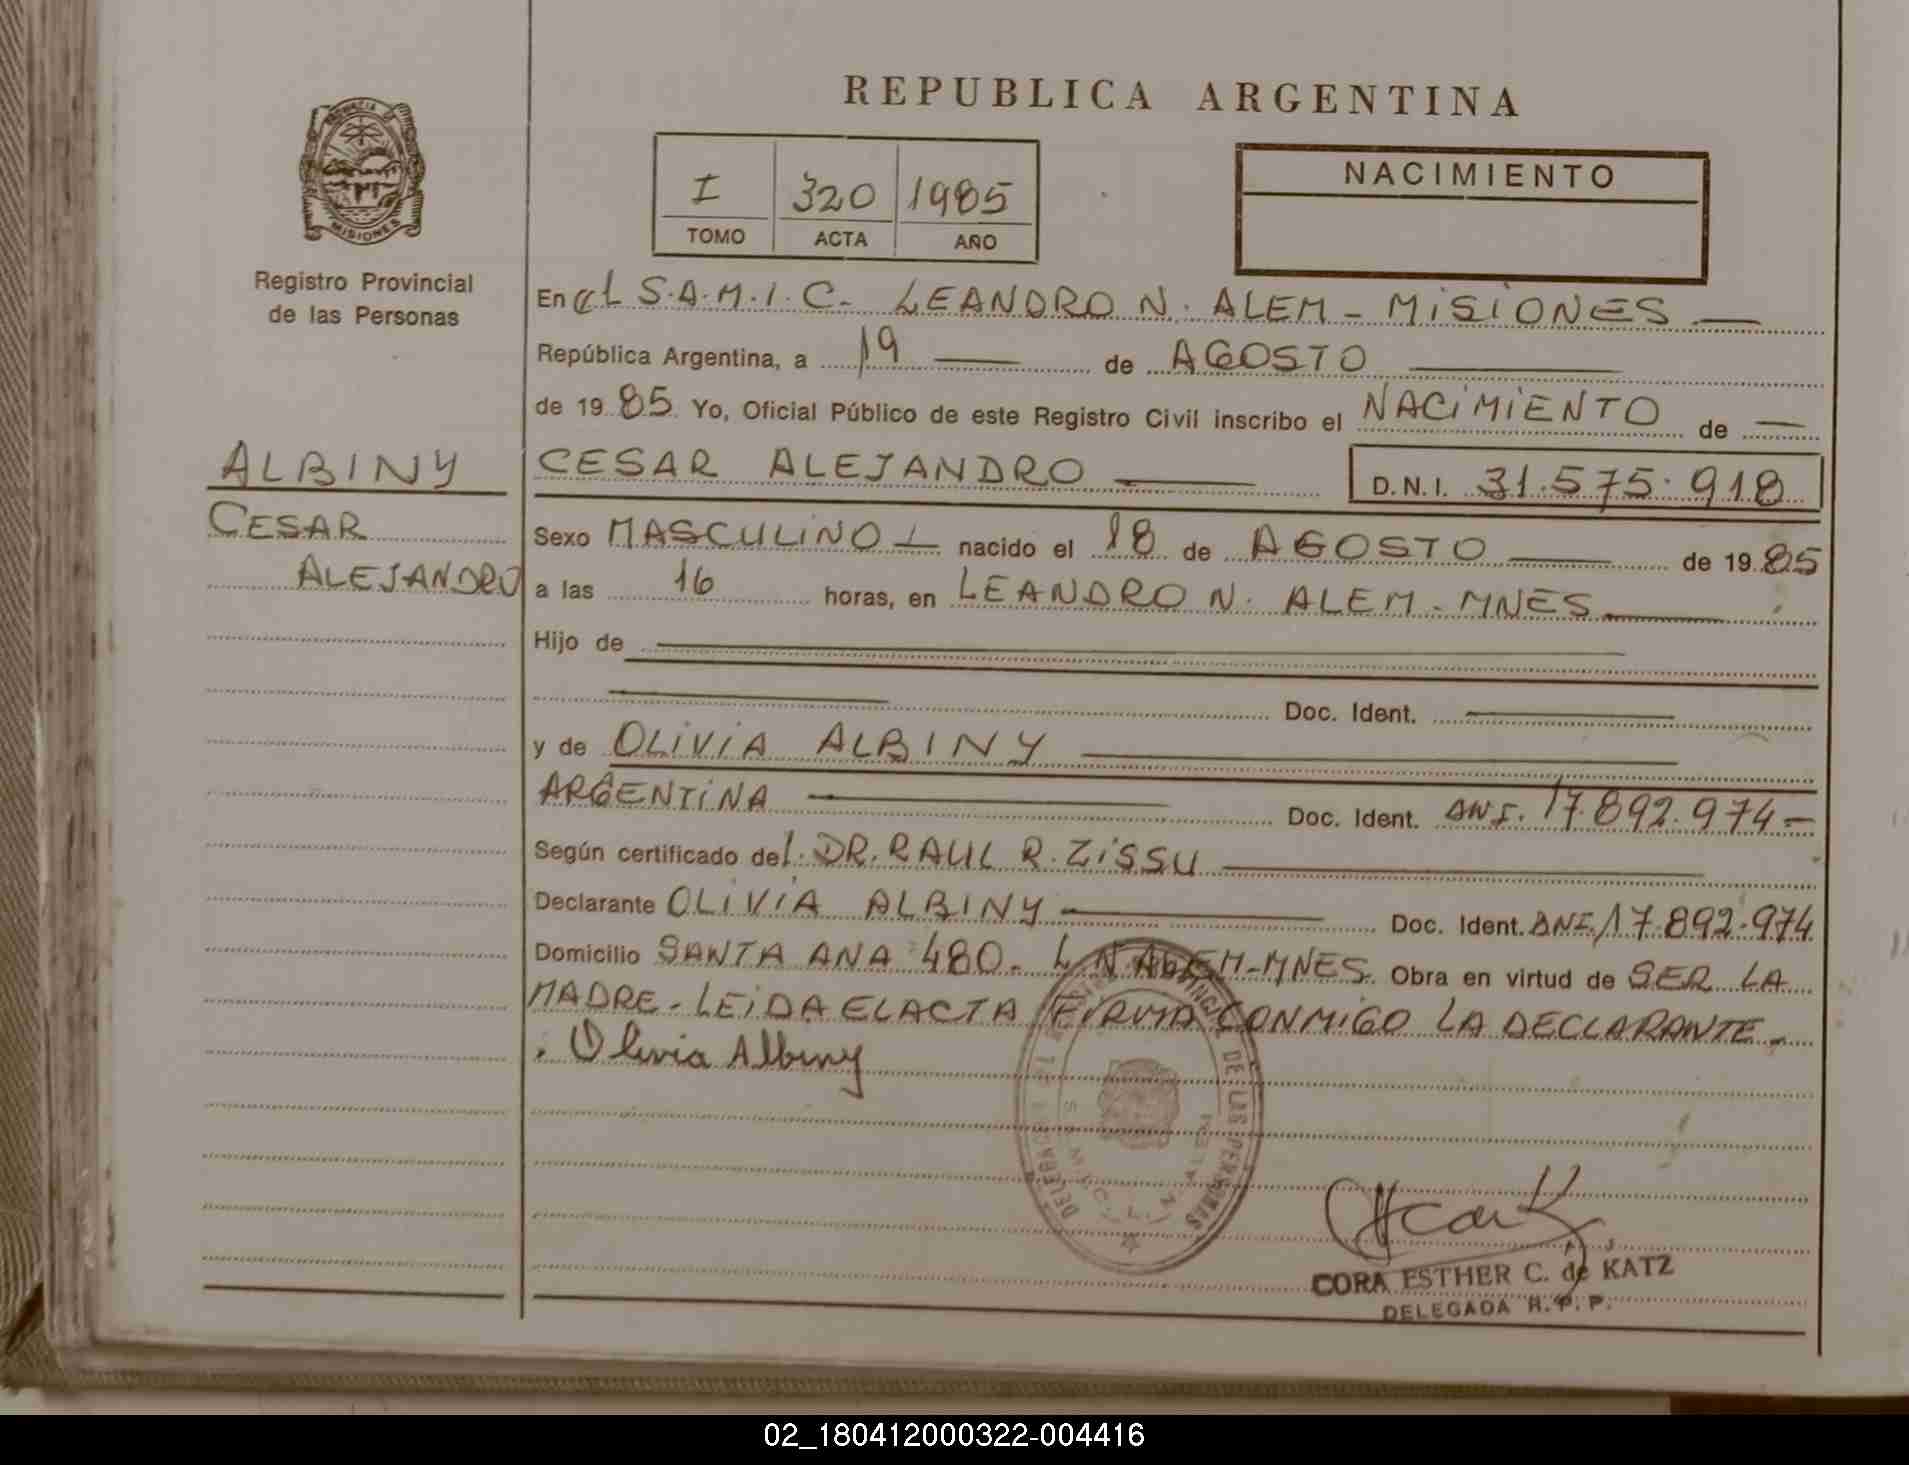 REPUBLICA ARGENTINA
PROVINCIA
MISIONES
Registro Provincial
de las Personas
I 320 1985
TOMO ACTA AÑO
NACIMIENTO
En el S.A.M.I.C. LEANDRO N. ALEM - MISIONES
República Argentina, a 19 de AGOSTO
de 1985 Yo, Oficial Público de este Registro Civil inscribo el NACIMIENTO de
ALBINY
CESAR
ALEJANDRO
CESAR ALEJANDRO D.N.I. 31.575.918
Sexo MASCULINO nacido el 18 de AGOSTO de 1985
a las 16 horas, en LEANDRO N. ALEM - MNES
Hijo de
Doc. Ident.
y de OLIVIA ALBINY
ARGENTINA Doc. Ident. DNI. 17.892.974
Según certificado del. DR. RAUL R. ZISSU
Declarante OLIVIA ALBINY Doc. Ident. DNI. 17.892.974
Domicilio SANTA ANA 480 - L N ALEM-MNES. Obra en virtud de SER LA
MADRE - LEIDA EL ACTA FIRMA CONMIGO LA DECLARANTE -
Olivia Albiny
DE LAS PERSONAS
S.A.M.I.C. L. N. ALEM
CORA ESTHER C. de KATZ
DELEGADA R.P.P.
02_180412000322-004416